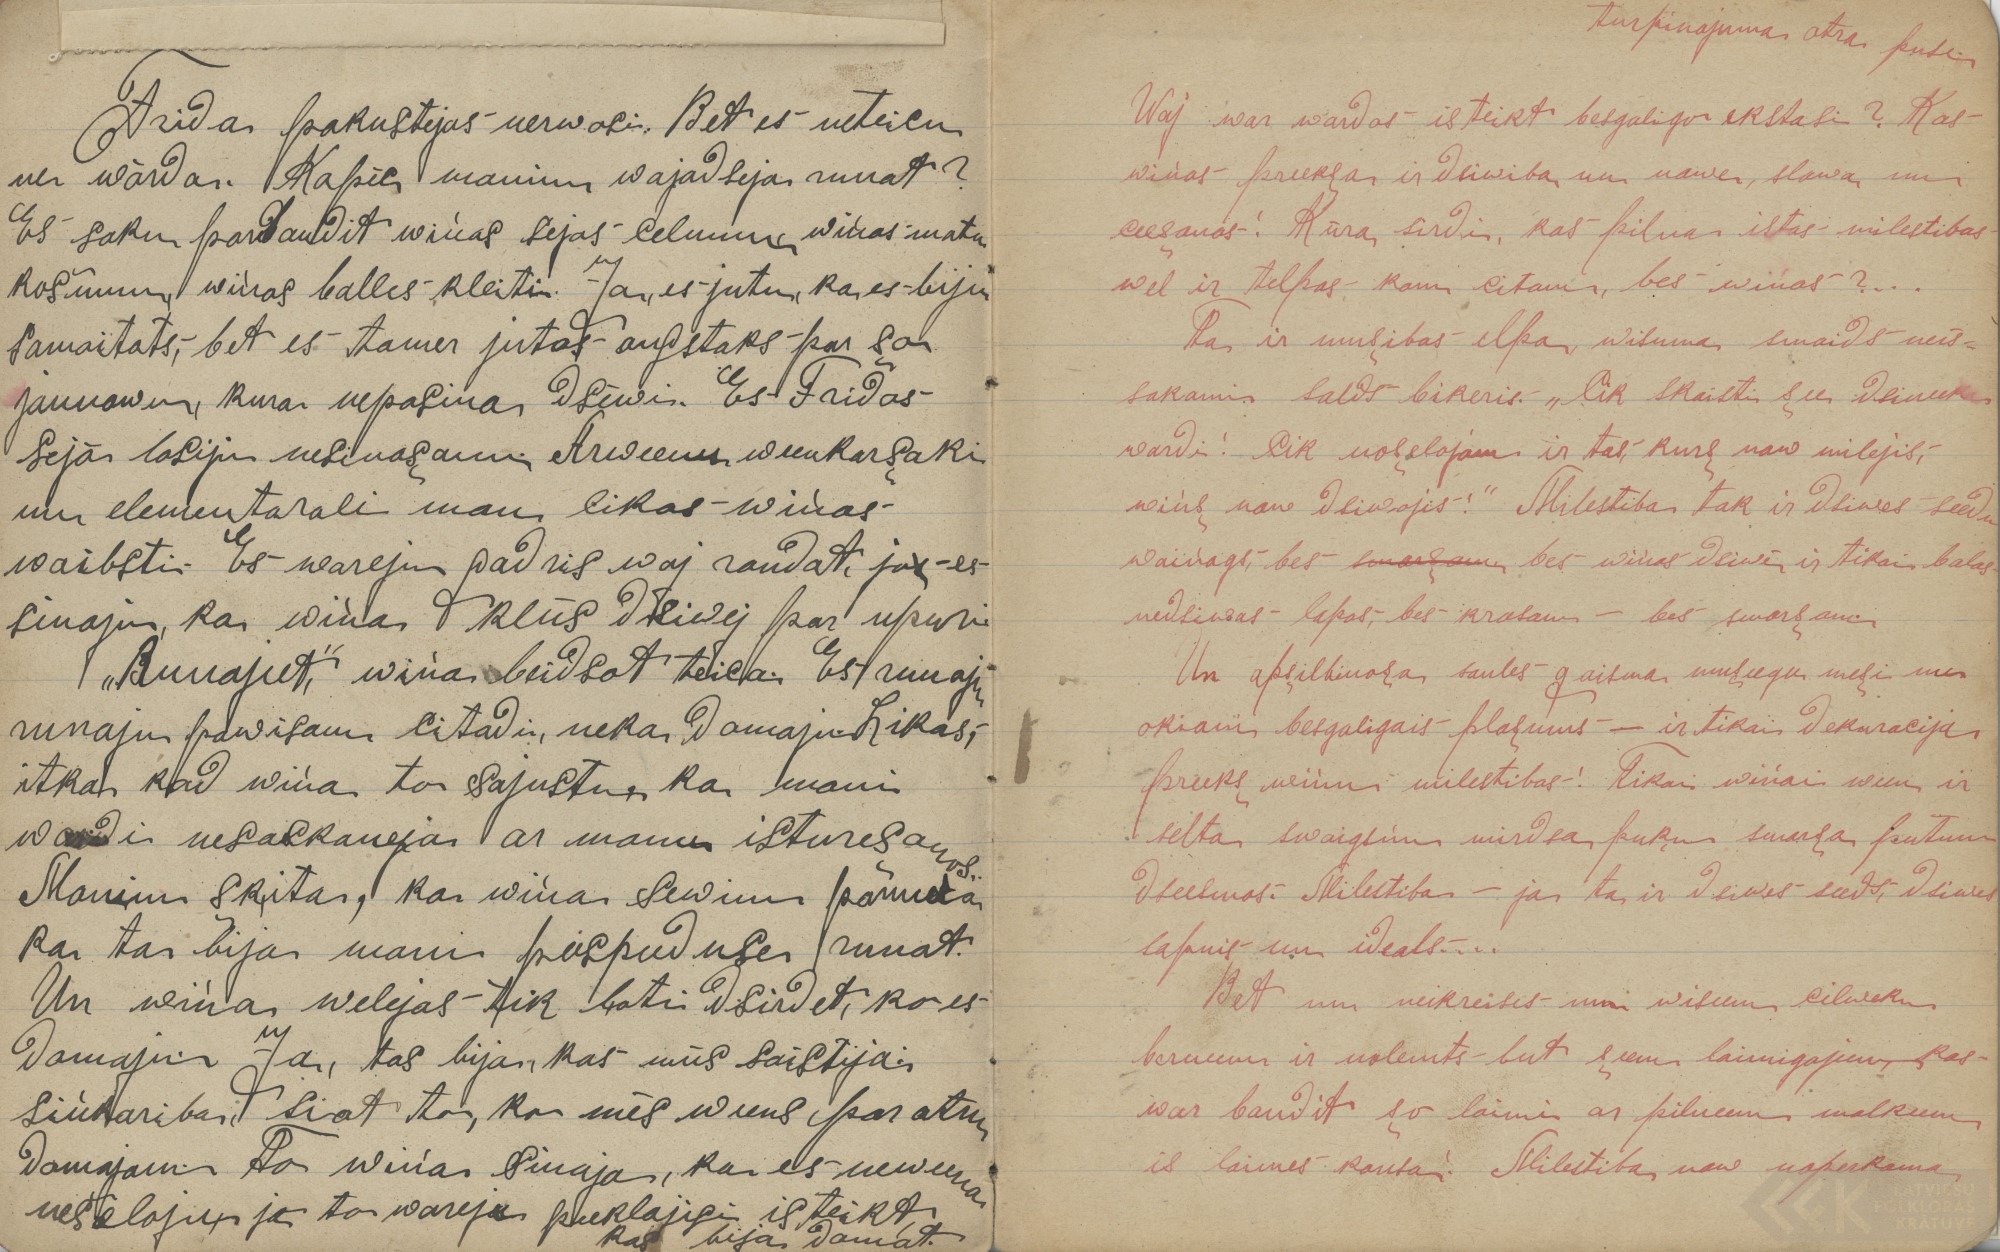 Frida pakustejas nerwosi. Bet es neteicu
ne wārda. Kapēc manim wajadseja runat?
Es saku pārbaudit wiņas sejas celumu, wiņas matu
košumu, wiņas balles kleiti. Ja, es jutu, ka es biju
samaitats, bet es tamer jutos augstaks par šo
jaunawu, kura nepasina dsiwi. Es Fridas
sejā lasiju nesinašanu. Arween weenkaršaki
un elementarali man likas wiņas
waibsti. Es wareju gadris waj raudat, jo es
sinaju, ka wiņa kļūs dsiwej par upuri.
„Runajiet," wiņa beidsot teica. Es runaju
runaju pawisam citadi, neka domaju. Likas,
itka kad wiņa to sajustu, ka mani
wardi nesaskaneja ar manu isturešanos.
Manim šķita, ka wiņa sewim pārmeta
ka ta bija mani pespeeduse runat.
Un wiņa welejas tik loti dsirdet, ko es
domaju. Ja, tas bija, kas mūs saistija.
siņkariba, sinat to, ko mēs weens par otru
domajam. To wiņa sinaja, ka es neweena
nešeloju, ja to wareju peeklajigi isteikt
kas bija domat.
turpinajums otrā pusē
Waj war wardos isteikt besgaligo ekstasi? Kas
wiņas preekša ir dsiwiba un nawe, slawa un
ceešanas! Kura sirdi, kas pilna istas milestibas
wel ir telpas kam citam, bes wiņas?...
Ta ir mušibas elpa, wisuma smaids neis-
sakami salds bikeris. „Cik skaisti šee dsineeka
wardi! Cik nošelojams ir tas, kurš naw milejis,
wiņš naw dsiwojis!" Milestiba tak ir dsiwes seedu
waiņags, bes smaršam, bes wiņas dsiwe ir tikai balas
nedsiwas lapas, bes krasam — bes smaršam.
Un apšilbinoša saules gaisma mušeegu meši un
okianu besgaligais plašums — ir tikai dekoracija
preekš wiņu milestibas! Tikai wiņai ween ir
selta swaigšņu mirdsa puķu smarša putnu
dseesmas. Milestiba — ja ta ir dsiwes seeds, dsiwes
sapnis un ideals....
Bet un neikreises un wiseem cilweku
berneem ir nolemts but šeem laimigajeem, kas
war baudit šo laimi ar pilneem malkeem
is laimes kausa! Milestiba naw noperkama
LATVIEŠU
FOLKLORAS
KRĀTUVE